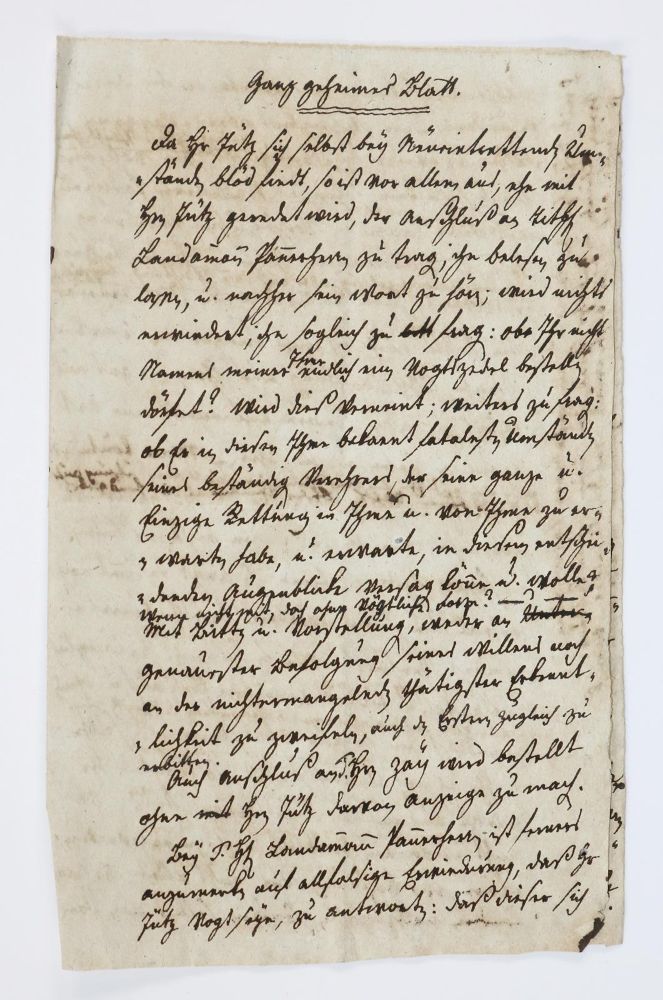 Ganz geheimes Blatt.
Da Hr Jütz sich selbst bey Neüeintrettendn Um-
ständn blöd findt, so ist vor allem aus, ehe mit
Hrn Jütz geredet wird, der Anschluß an
Landamañ Pannerherrn zu trag, ihn belesen zu
lassn, u. nachher sein Wort zu hörn; wird nichts
erwiedert, ihn sogleich zu frag: obe Ihr nicht
Namens meiner Ihme endlich ein Vogtszedel bestelln
dörfet? wird dies verneint; weiters zu frag:
ob Er in diesen Ihme bekannt fatalestn Umständn
seines beständig Verehrers der seine ganze u.
Einzige Rettung in Ihme u. von Ihme zu er-
wartn habe, u. erwarte, in diesem entschei-
denden Augenblicke versag könne u. wolle?
wenn nicht mit, doch ohne Vögtliche
Mit Bittn u. Vorstellung, weder an
genauester Befolgung seines Willens noch
an der nichtermangelndn thätigster Erkennt-
lichkeit zu zweifeln, auch dn Erstern zugleich zu
erbitten.
Auch Anschluß an Hrn Zäy wird bestellt
ohne Hrn Jütz davon Anzeige zu mach.
Bey T. Hr Landamañ Pannerherrn ist ferners
anzumerkn auf allfalsige Erwiederung, daß Hr
Jütz Vogt seye, zu antwortn: daß dieser sich